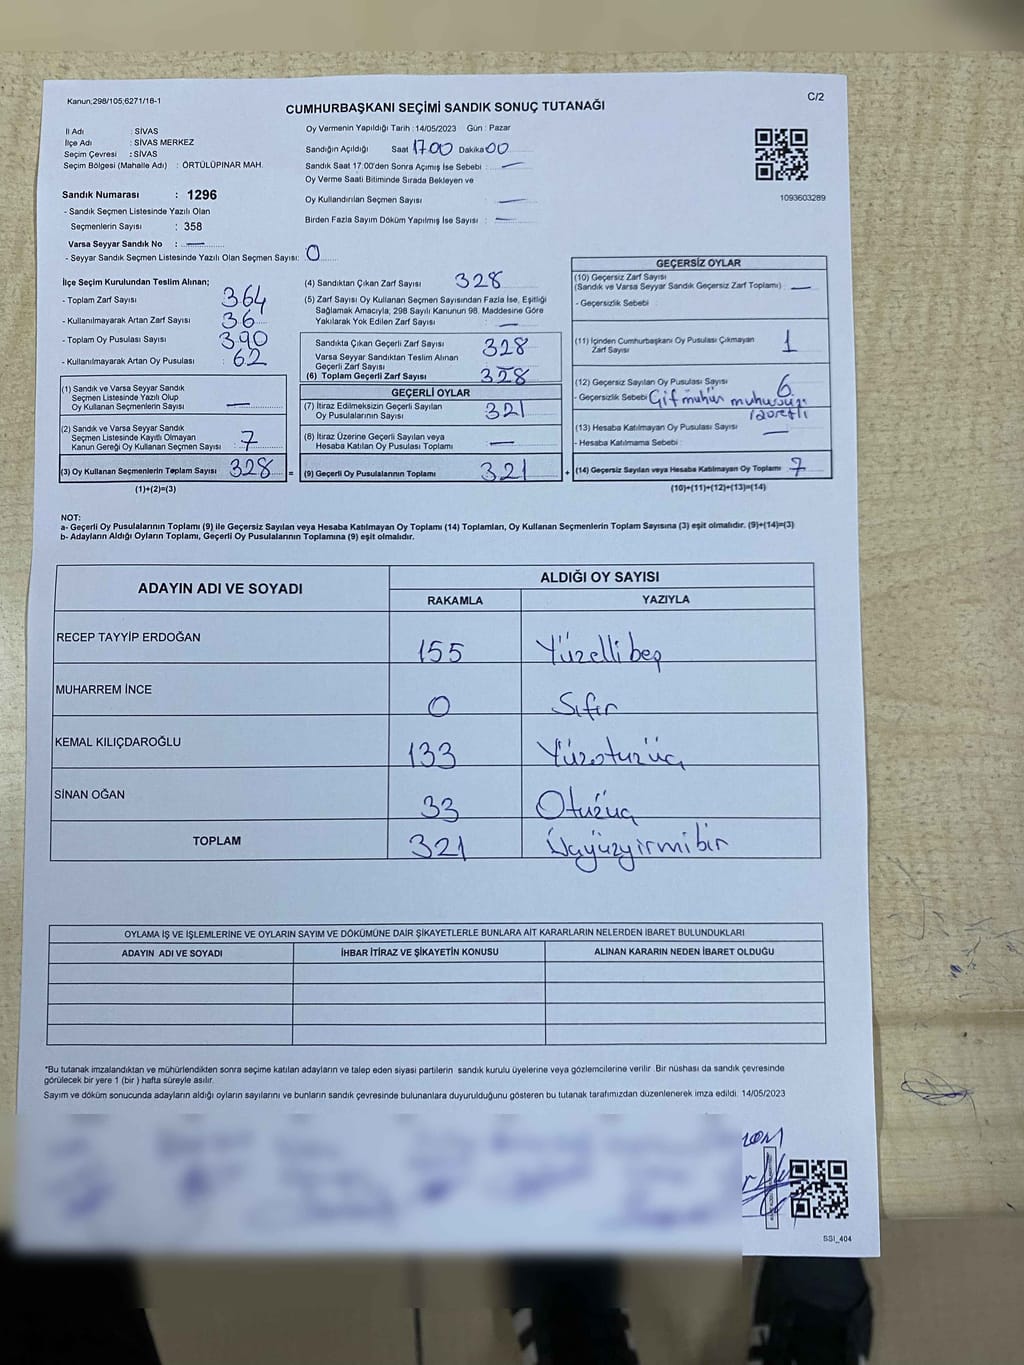 Kanun;298/105,6271/16-1
C/2
CUMHURBAŞKANI SEÇİMİ SANDIK SONUÇ TUTANAĞI
İl Adı : SİVAS
İlçe Adı : SİVAS MERKEZ
Seçim Çevresi : SİVAS
Seçim Bölgesi (Mahalle Adı) : ÖRTÜLÜPINAR MAH.
Sandık Numarası : 1296
- Sandık Seçmen Listesinde Yazılı Olan
Seçmenlerin Sayısı : 358
Varsa Seyyar Sandık No : —
- Seyyar Sandık Seçmen Listesinde Yazılı Olan Seçmen Sayısı: 0
Oy Vermenin Yapıldığı Tarih : 14/05/2023 Gün : Pazar
Sandığın Açıldığı Saat 17.00 Dakika 00
Sandık Saat 17:00'den Sonra Açımış İse Sebebi : —
Oy Verme Saati Bitiminde Sırada Bekleyen ve
Oy Kullandırılan Seçmen Sayısı : —
Birden Fazla Sayım Döküm Yapılmış İse Sayısı : —
1093603289
İlçe Seçim Kurulundan Teslim Alınan;
- Toplam Zarf Sayısı : 364
- Kullanılmayarak Artan Zarf Sayısı : 36
- Toplam Oy Pusulası Sayısı : 390
- Kullanılmayarak Artan Oy Pusulası : 62
(1) Sandık ve Varsa Seyyar Sandık
Seçmen Listesinde Yazılı Olup
Oy Kullanan Seçmenlerin Sayısı : —
(2) Sandık ve Varsa Seyyar Sandık
Seçmen Listesinde Kayıtlı Olmayan
Kanun Gereği Oy Kullanan Seçmen Sayısı : 7
(3) Oy Kullanan Seçmenlerin Toplam Sayısı : 328 =
(1)+(2)=(3)
(4) Sandıktan Çıkan Zarf Sayısı : 328
(5) Zarf Sayısı Oy Kullanan Seçmen Sayısından Fazla İse, Eşitliği
Sağlamak Amacıyla; 298 Sayılı Kanunun 98. Maddesine Göre
Yakılarak Yok Edilen Zarf Sayısı : —
Sandıkta Çıkan Geçerli Zarf Sayısı : 328
Varsa Seyyar Sandıktan Teslim Alınan
Geçerli Zarf Sayısı :
(6) Toplam Geçerli Zarf Sayısı : 328
GEÇERLİ OYLAR
(7) İtiraz Edilmeksizin Geçerli Sayılan
Oy Pusulalarının Sayısı : 321
(8) İtiraz Üzerine Geçerli Sayılan veya
Hesaba Katılan Oy Pusulası Toplamı : —
(9) Geçerli Oy Pusulalarının Toplamı : 321 +
GEÇERSİZ OYLAR
(10) Geçersiz Zarf Sayısı
(Sandık ve Varsa Seyyar Sandık Geçersiz Zarf Toplamı) : —
- Geçersizlik Sebebi :
(11) İçinden Cumhurbaşkanı Oy Pusulası Çıkmayan
Zarf Sayısı : 1
(12) Geçersiz Sayılan Oy Pusulası Sayısı : 6
- Geçersizlik Sebebi
(13) Hesaba Katılmayan Oy Pusulası Sayısı : —
- Hesaba Katılmama Sebebi :
(14) Geçersiz Sayılan veya Hesaba Katılmayan Oy Toplamı : 7
(10)+(11)+(12)+(13)=(14)
NOT:
a- Geçerli Oy Pusulalarının Toplamı (9) ile Geçersiz Sayılan veya Hesaba Katılmayan Oy Toplamı (14) Toplamları, Oy Kullanan Seçmenlerin Toplam Sayısına (3) eşit olmalıdır. (9)+(14)=(3)
b- Adayların Aldığı Oyların Toplamı, Geçerli Oy Pusulalarının Toplamına (9) eşit olmalıdır.
ADAYIN ADI VE SOYADI
ALDIĞI OY SAYISI
RAKAMLA YAZIYLA
RECEP TAYYİP ERDOĞAN 155 Yüzellibeş
MUHARREM İNCE 0 Sıfır
KEMAL KILIÇDAROĞLU 133 Yüzotuzüç
SİNAN OĞAN 33 Otuzüç
TOPLAM 321 Üçyüzyirmibir
OYLAMA İŞ VE İŞLEMLERİNE VE OYLARIN SAYIM VE DÖKÜMÜNE DAİR ŞİKAYETLERLE BUNLARA AİT KARARLARIN NELERDEN İBARET BULUNDUKLARI
ADAYIN ADI VE SOYADI İHBAR İTİRAZ VE ŞİKAYETİN KONUSU ALINAN KARARIN NEDEN İBARET OLDUĞU
*Bu tutanak imzalandıktan ve mühürlendikten sonra seçime katılan adayların ve talep eden siyasi partilerin sandık kurulu üyelerine veya gözlemcilerine verilir .Bir nüshası da sandık çevresinde
görülecek bir yere 1 (bir ) hafta süreyle asılır.
Sayım ve döküm sonucunda adayların aldığı oyların sayılarını ve bunların sandık çevresinde bulunanlara duyurulduğunu gösteren bu tutanak tarafımızdan düzenlenerek imza edildi. 14/05/2023
SSI_404